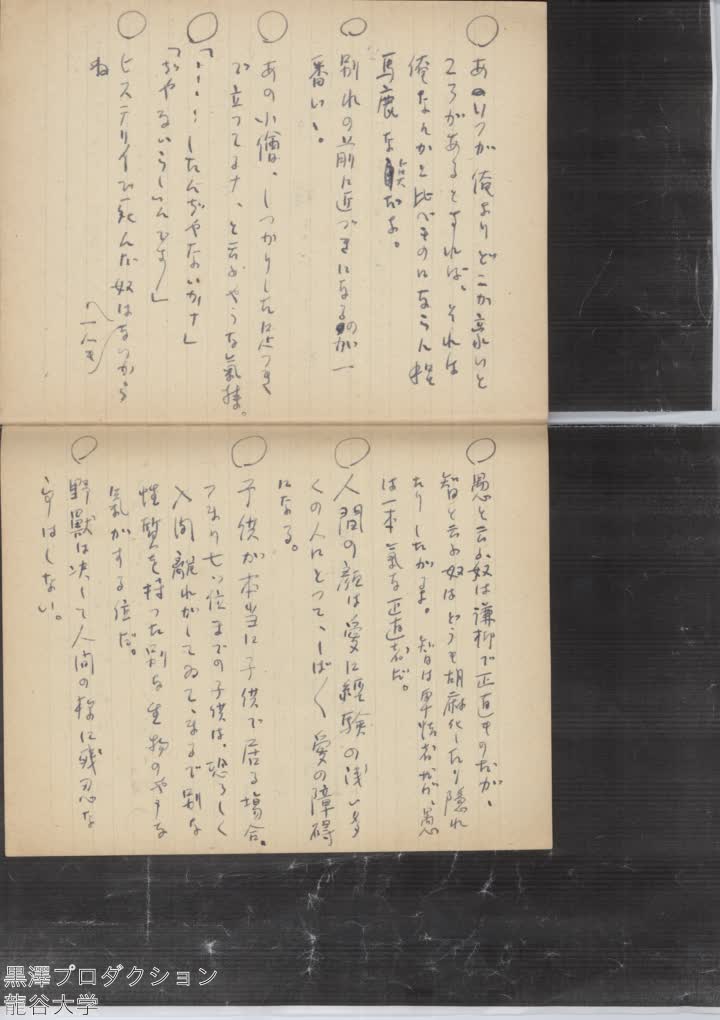 〇 あいつが俺よりどこか豪いと
ころがあるとすれば、それは
俺なんかと比べものにならん程
馬鹿な点だよ。
〇 別れの前に近づきになるのが一
番いゝ。
〇 あの小僧、しつかりした足つき
で立つてるナ、と云ふやうな気持。
〇 「・・・・したんぢやないかナ」
「ぢやないらしいんです」
〇 ヒステリイで死んだ奴はないから
ね
一人も
〇 愚と云ふ奴は謙抑で正直ものだが、
智と云ふ奴はどうも胡麻化したり隠れ
たりしたがるよ。智は卑怯者だが、愚
は一本気な正直者だ。
〇 人間の顔は愛に経験の浅い多
くの人にとつて、しば〱愛の障碍
になる。
〇 子供が本当に子供で居る場合。
つまり七ツ位までの子供は、恐ろしく
人間離れがしてゐて、まるで別な
性質を持つた別な生物のやうな
気がする位だ。
〇 野獣は決して人間の様に残忍な
事はしない。
黒澤プロダクション
龍谷大学